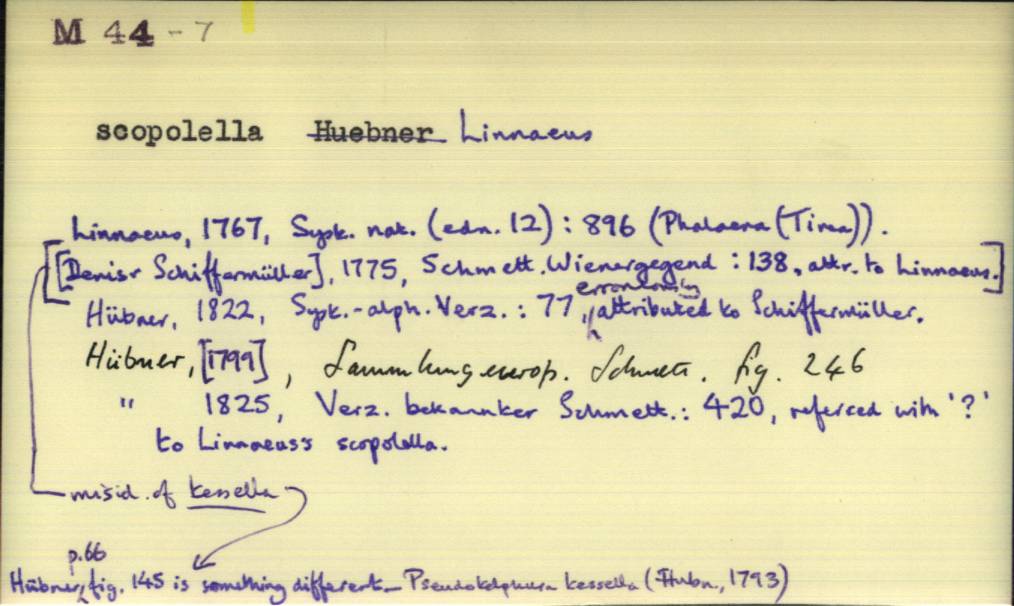 M 44 - 7
scopolella Huebner Linnaeus
Linnaeus, 1767, Syst. nat. (edn. 12) : 896 (Phalaena (Tinea)).
[[Denis & Schiffermüller], 1775, Schmett. Wienergegend : 138, attr. to Linnaeus.]
Hübner, 1822, Syst.-alph. Verz. : 77, erroneously attributed to Schiffermüller.
Hübner, [1799], Sammlung europ. Schmett. fig. 246
" 1825, Verz. bekannter Schmett. : 420, referred with '?'
to Linnaeus's scopolella.
misid. of tessella
p.66
Hübner, fig. 145 is something different - Pseudotelphusa tessella (Hubn, 1793)